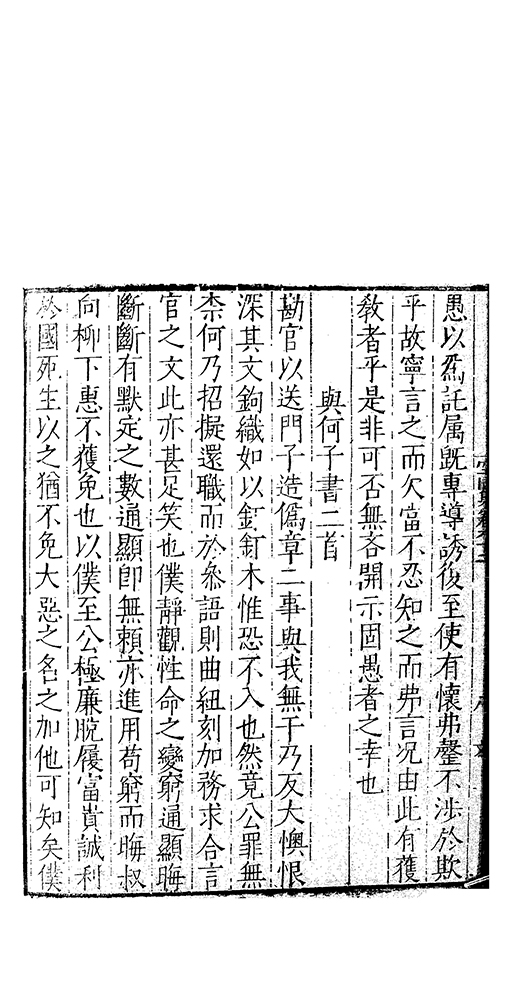 愚以爲託属旣專導誘後至使有懷弗罄不涉於欺
乎故寧言之而欠當不忍知之而弗言况由此有獲
敎者乎是非可否無吝開示固愚者之幸也
與何子書二首
勘官以送門子造僞章二事與我無干乃反大懊恨
深其文鉤織如以釘釘木惟恐不入也然竟公罪無
柰何乃招擬還職而於叅語則曲紐刻加務求合言
官之文此亦甚足笑也僕靜觀性命之變窮通顯晦
斷斷有默定之數通顯卽無頼亦進用苟窮而晦叔
向栁下惠不獲免也以僕至公極廉脫屣富貴誠利
於國死生以之猶不免大惡之名之加他可知矣僕